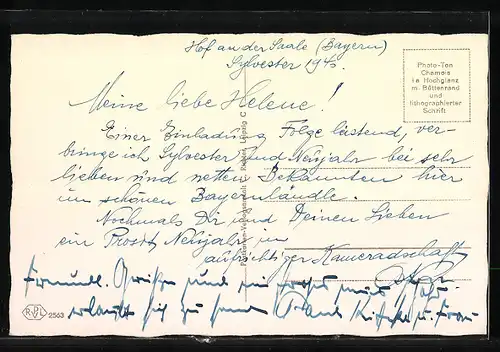 Hof an der Saale (Bayern)
Sylvester 1940.
Photo-Ton
Chamois
i a Hochglanz
m. Büttenrand
und
lithographierter
Schrift
Meine liebe Helene!
Einer Einladung Folge leistend, ver-
bringe ich Sylvester und Neujahr bei sehr
lieben und netten Bekannten hier
im schönen Bayernländle.
Nochmals Dir und Deinen Lieben
ein Prosit Neujahr in
aufrichtiger Kameradschaft
Freundl. Grüße und ein frohes neues Jahr
erlaubt sich zu senden und Frau
RPL 2563